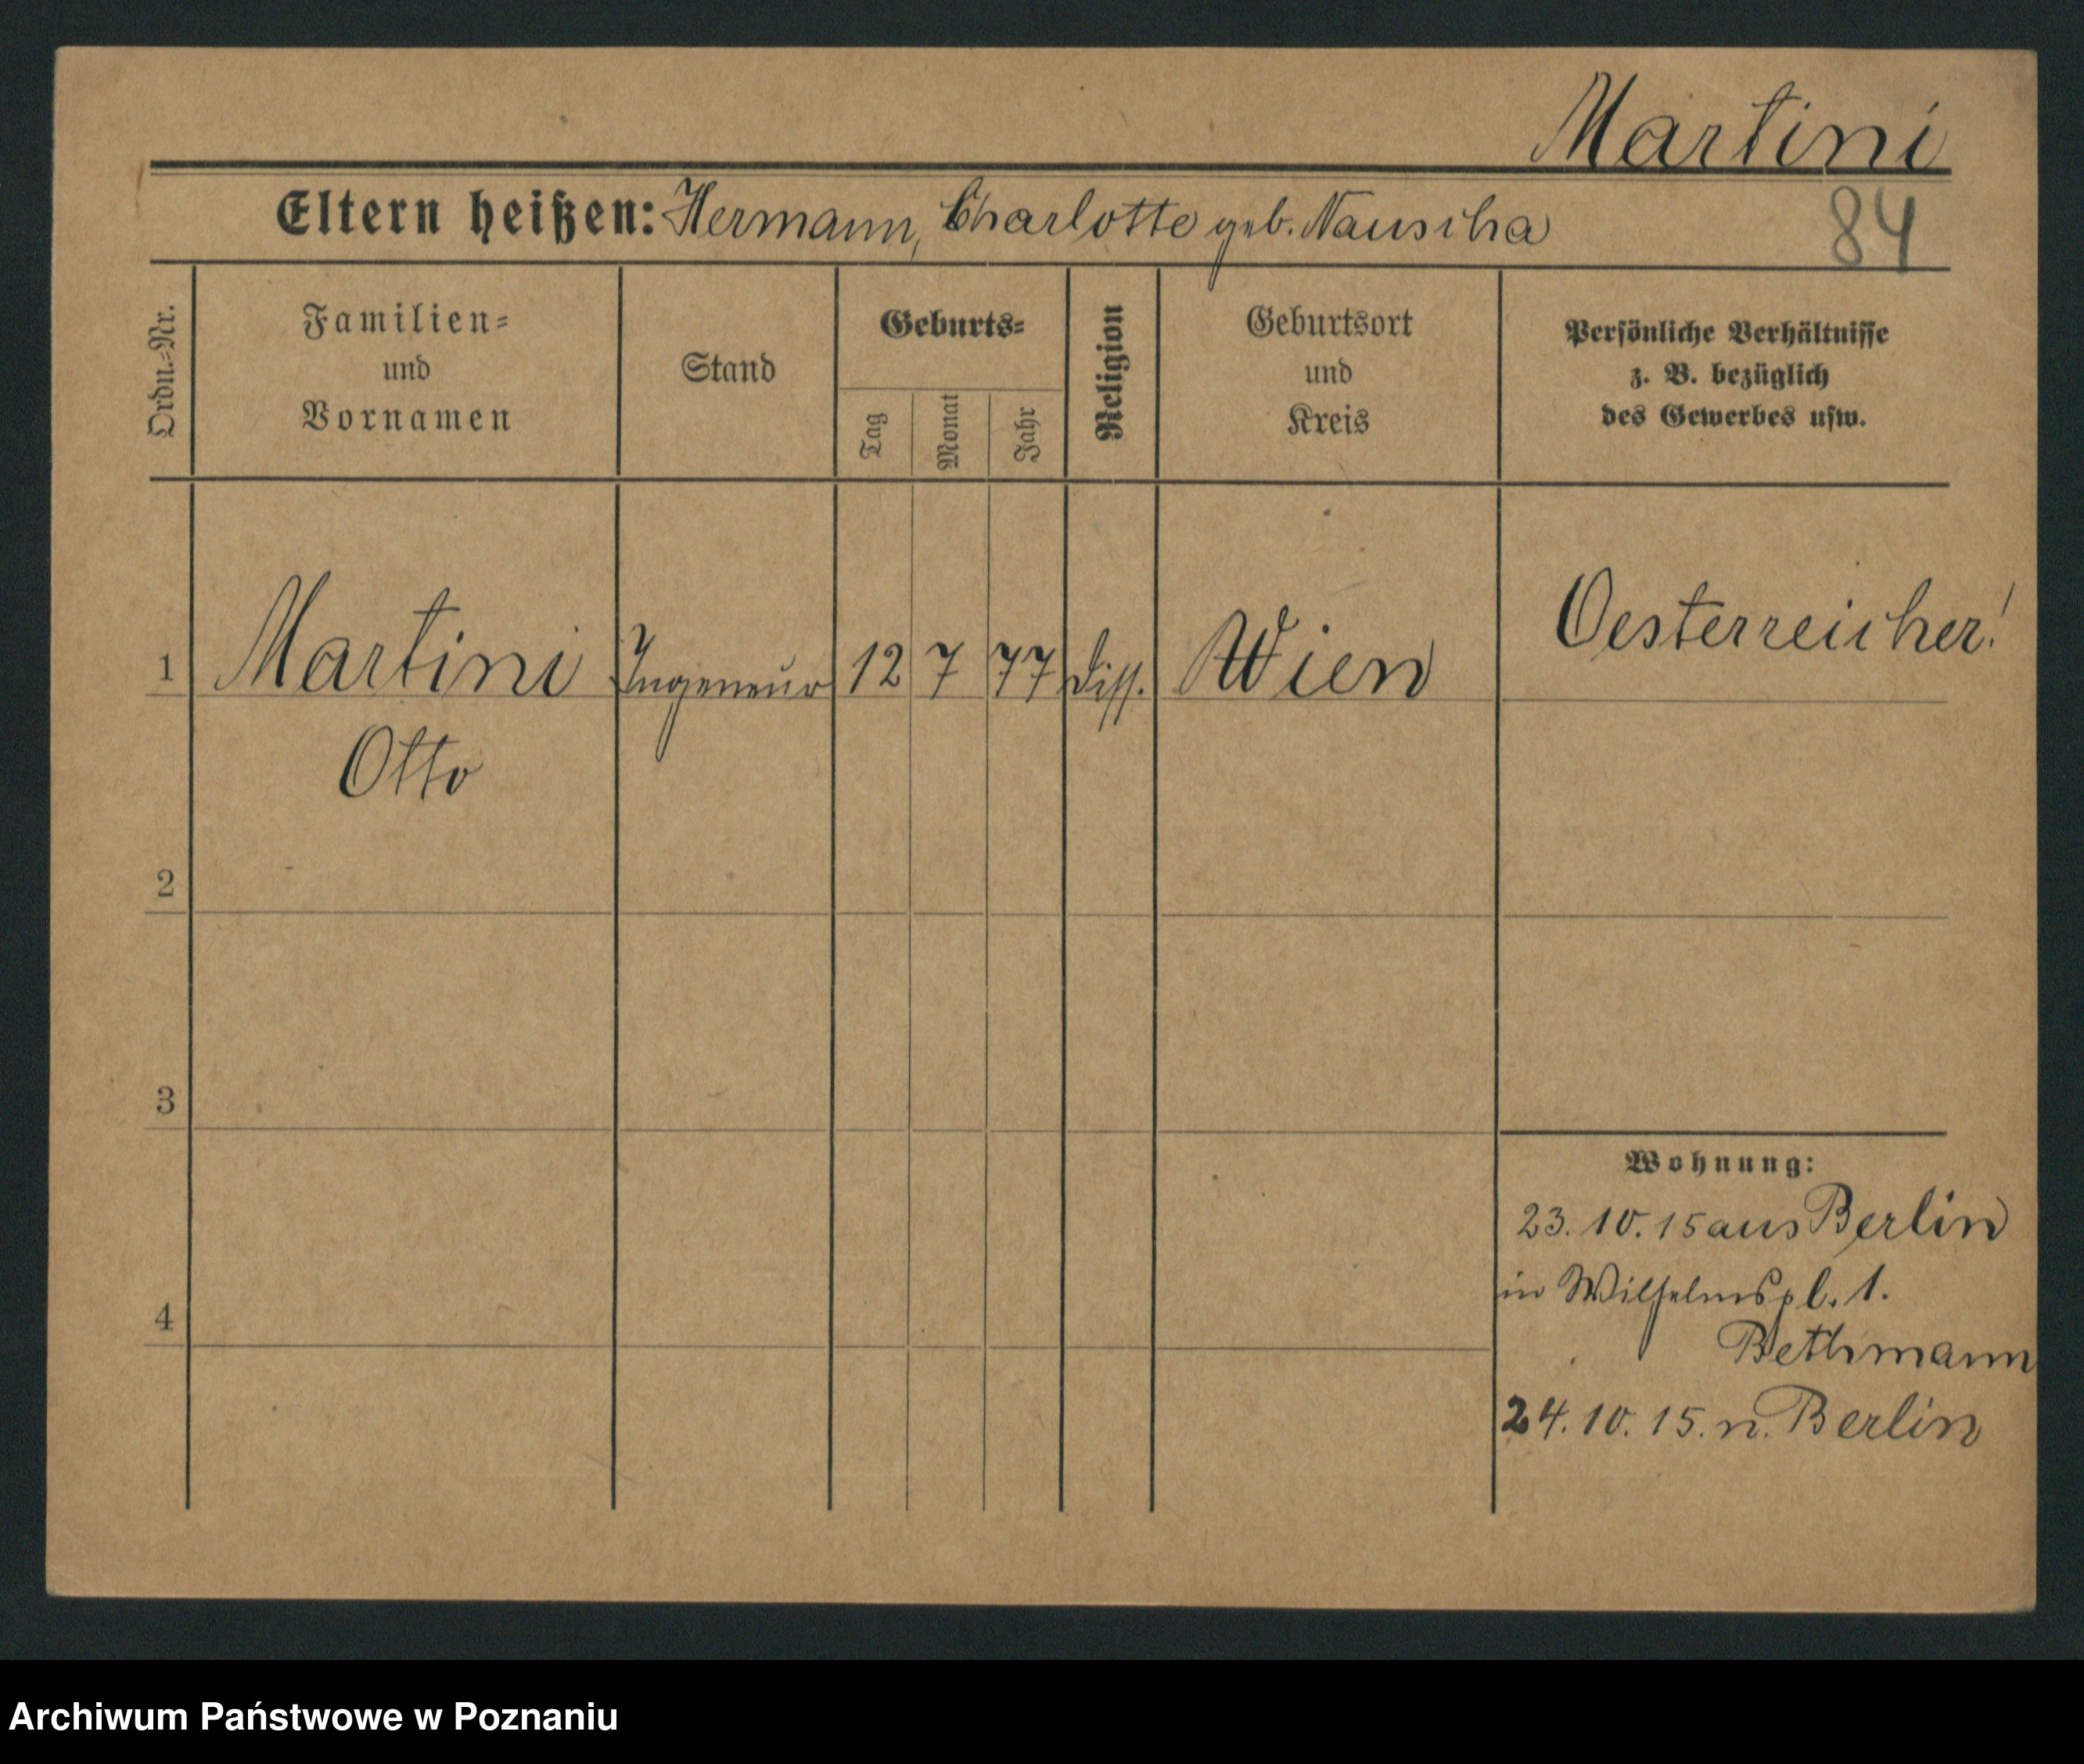 Martini
Eltern heißen: Hermann, Charlotte geb. Nauscha
84
Ordn.-Nr.
Familien-
und
Vornamen
Stand
Geburts-
Tag
Monat
Jahr
Religion
Geburtsort
und
Kreis
Persönliche Verhältnisse
z. B. bezüglich
des Gewerbes usw.
1 Martini Ingeneur 12 7 77 diss. Wien Oesterreicher!
Otto
2
3
Wohnung:
23. 10. 15 aus Berlin
in Wilhelmspl. 1.
4
Bethmann
24. 10. 15. n. Berlin
Archiwum Państwowe w Poznaniu